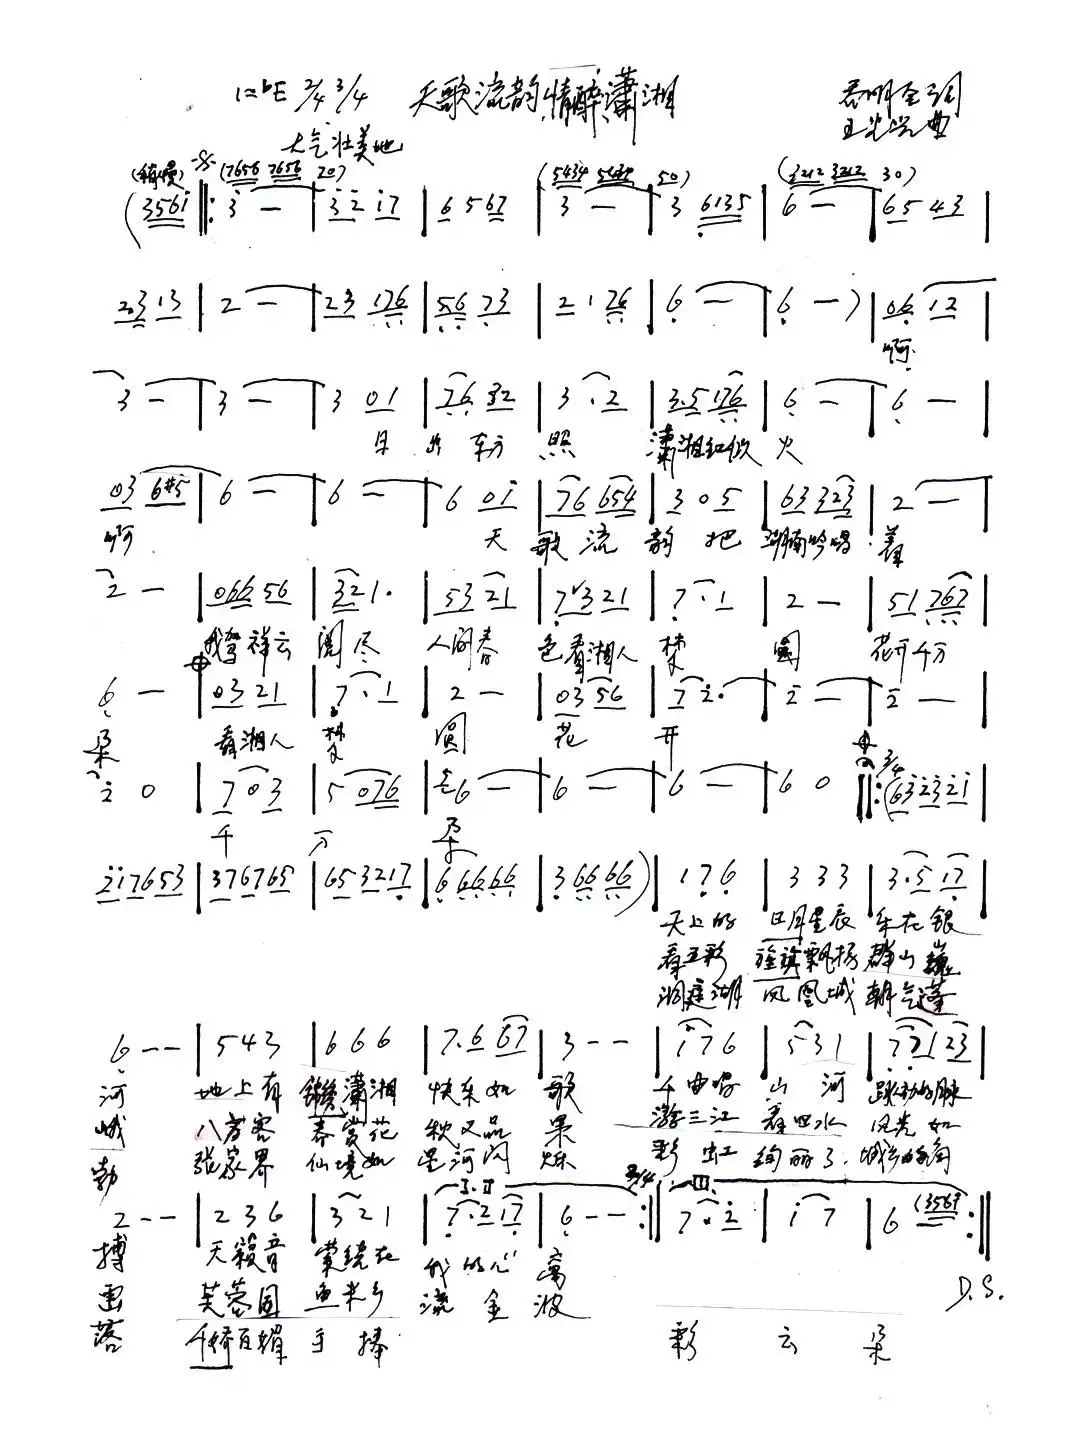 1=♭E 2/4 3/4 天歌流韵情醉潇湘 词
大气壮美地 曲
(稍慢) (7656 7656 70) (5434 5434 50) (3212 3212 30)
(3561 3 - 32 17 6 567 3 - 3 6135 6 - 65 43
23 13 2 - 23 176 56 73 2 176 6 - 6 -) 06 12
啊
3 - 3 - 3 01 76 32 3·2 3·5 176 6 - 6 -
日 出 东方 照 潇湘红似 火
03 6#5 6 - 6 - 6 01 76 654 3 05 63 323 2 -
啊 天 歌 流 韵 把 湖南吟唱
2 - 066 56 321· 53 21 7321 7·1 2 - 51 767
我驾祥云 阅尽 人间春 色看湘人 梦 圆 花开千万
6 - 03 21 7·1 2 - 03 56 7 2· 2 - 2 -
朵 看湘人 梦 圆 花 开
3/4
2 0 7 03 5 076 6 - 6 - 6 - 6 0 (632321
千 万 朵
217653 376765 653217 666666 36666) 176 333 3·5 17
天上的 日月星辰 乐在银
看五彩 旌旗飘扬 群山巍
洞庭湖 凤凰城 朝气蓬
6 - - 543 666 7·6 67 3 - - 176 531 7721 23
河 地上有 潇湘 快乐如 歌 千曲唱 山 河 跳动的脉
峨 八方客 春赏花 秋又品 果 游三江 看四水 风光如
勃 张家界 仙境如 星河闪 烁 彩 虹 绚丽了 城乡的角
I.II 2/4 III
2 - - 236 321 7·2 17 6 - - 7·2 17 6 (3561
搏 天籁音 萦绕在 我 的心 窝
画 芙蓉国 鱼米乡 流 金 波 D.S.
落 千娇百媚 手 捧 彩 云 朵